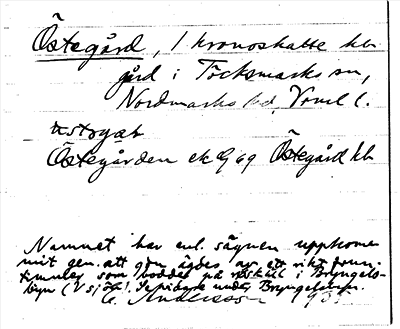 Östegård, 1 kronoskatte hbr
gård i Töcksmarks sn,
Nordmarks hd, Vrml l.
Östegården ek 9 69 Östegård kb
Namnet har enl. sägnen uppkom
mit gen. att gden ägdes av ett rikt
som bodde på i Bryngels-
byn (V sjön). Se vidare under Bryngelsbyn.
Andersson 193